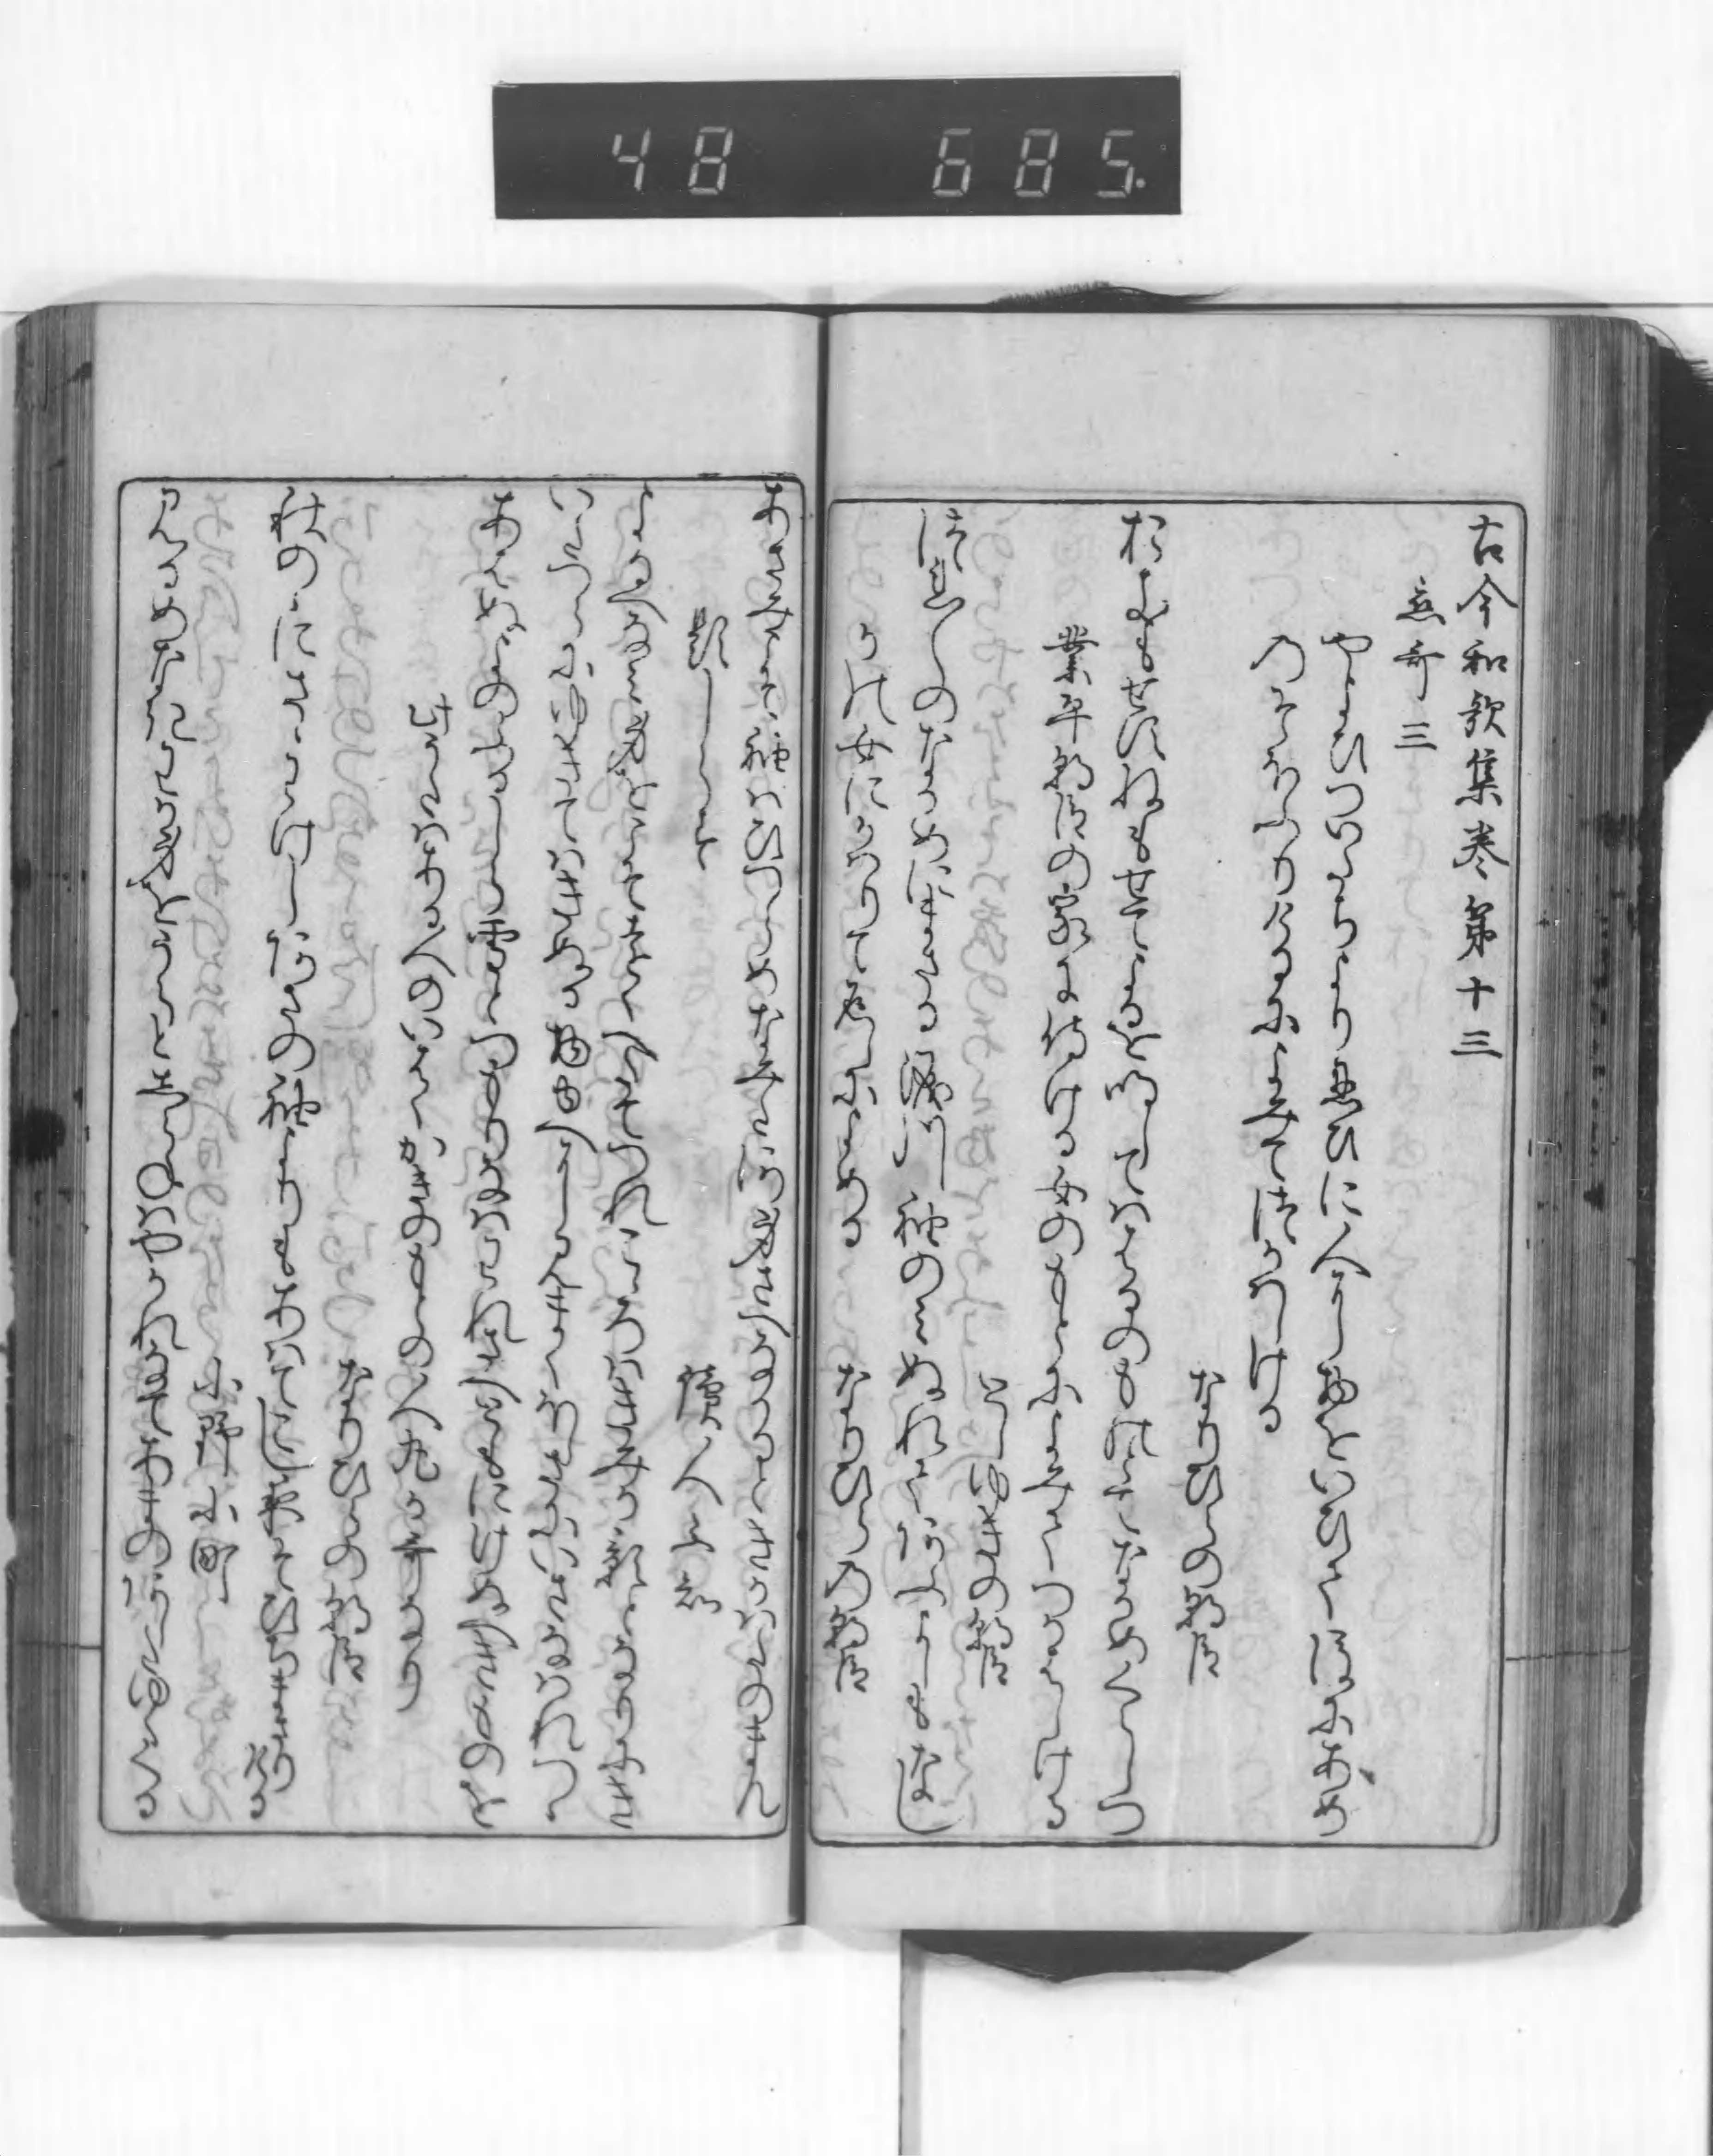 古今和歌集巻第十三
恋哥三
やよひのついたちより忍ひに人に物をいひてのちにあめ
乃そほふりけるによみてつかはしける
なりひらの朝臣
おきもせすねもせてよるをあかしては春の物とてなかめくらしつ
業平朝臣の家に侍ける女のもとによみてつかはしける
としゆきの朝臣
つれ〱のなかめにまさる涙川袖のみぬれてあふよしもなし
かの女にかはりて返しによめる
なりひらの朝臣
あさみこそ袖はひつらめなみた川身さへなかるときかはたのまん
題しらす
読人しらす
よるへなみ身をこそとをくへたてつれ心は君か影となりにき
いたつらに行てはきぬる物ゆへに見まくほしさにいさなはれつゝ
あはぬ夜のふる白雪とつもりなは我さへともにけぬへき物を
此哥はある人のいはくかきのもとの人丸か哥也
なりひらの朝臣
秋のゝにさゝわけしあさの袖よりもあはてこし夜そひちまさりける
小野小町
見るめなき我身をうらとしらねはやかれなてあまのあしたゆくくる
48 685.